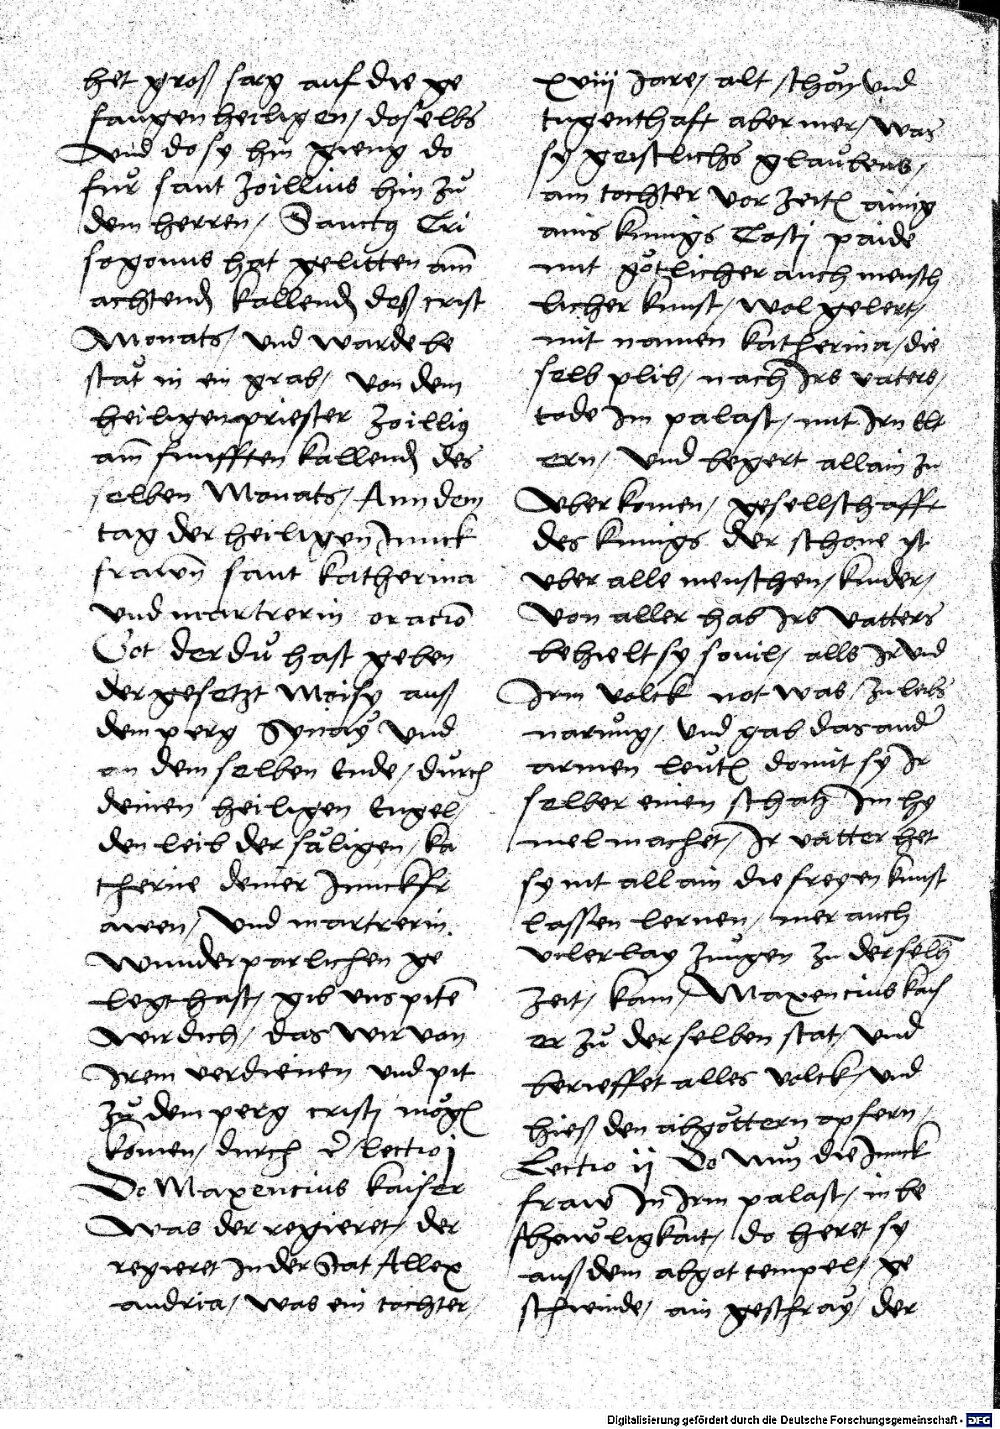 het groß sarg auf die ge
fangen heiligen / doselbs
Vnd do sy hin gieng do
fuͦr sant Zoillius hin zuͦ
dem herren / Sanctus Cri
sogonus hat gelitten am
achtenden kallend deß crist
Monats / vnd warde be
stat in ein grab / von dem
heiligen priester Zoillius
am funfften kallend des
selben Monats / Ann dem
tag der heiligen Junck
frawen sant Katherina
vnd martrerin oracio
Got der duͦ hast geben
der gesetzt Moisy auß
dem perg Synay Vnd
an dem selben Ende / durch
deinen heiligen Engel /
den leib der säligen / ka
therine deiner Junckfr
awen / Vnd martrerin.
wunderparlichen ge
legt hast / gib vns piten
wir dich / das wir von
Irem verdienen vnd pit
zuͦ dem perg cristi mögen
komen / durch Lectio j
Do Maxencius kaiser
was der regieret / der
regieret In der Stat Allex
andria / was ein tochter /
xviij Jare / alt / schön vnd
tugenthaft aber mer / was
sy geistlichs glaubens /
ain tochter vor zeiten ainig
ains kunigs Costi paide
mit götlicher auch mensch
licher kunst / wol gelert /
mit namen katherina / die
selb plib / nach Irs vaters /
tode Im palast / mit Irn Elt
ern / vnd begert allain zu
vberkomen / gesellschafft
des kunigs der schone ist
vber alle menschen / kinder /
Von aller hab Irs vatters
behielt sy souil / alls Ir vnd
Irm volck not was / zu leibs
narung / vnd gab das ander
armen leuten domit sy Ir
selber einen schatz Im hy
mel machet / Ir vatter het
sy nit allain die freyen kunst
lassen lernen / mer auch
vilerlay zungen zu der selben
zeit / kam / Maxencius kais
er zuͦ der selben stat / vnd
berieffet alles volck / vnd
hieß den abgöttern opfern /
Lectio ij Do Nun die Junck
fraw In Irm palast / in be
schawligkait / do heret sy
auß dem abgot tempel / ge
schwinde / ain geschray / der
Digitalisierung gefördert durch die Deutsche Forschungsgemeinschaft - DFG